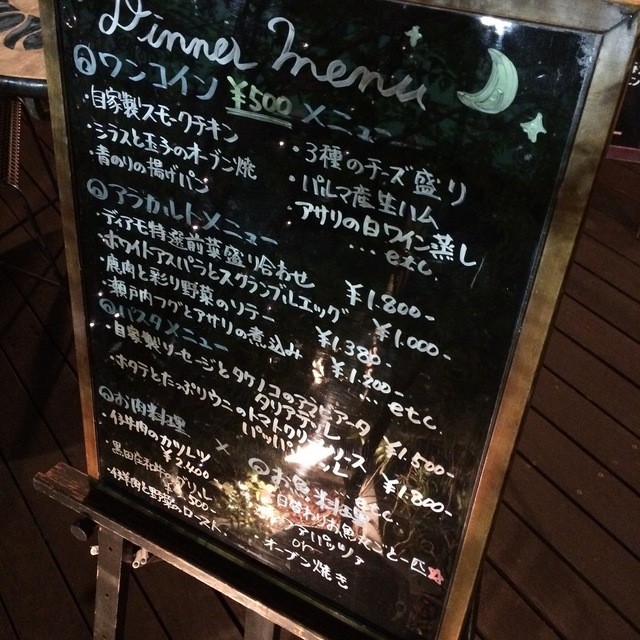 Dinner Menu
ワンコイン ¥500 メニュー
・自家製スモークチキン
・シラスと玉子のオーブン焼
・青のりの揚げパン
・3種のチーズ盛り
・パルマ産生ハム
・アサリの白ワイン蒸し
... etc.
アラカルトメニュー
・ディアモ特選前菜盛り合わせ ¥1.800-
・ホワイトアスパラとスクランブルエッグ ¥1.000-
・鹿肉と彩り野菜のソテー ¥1.380-
・瀬戸内フグとアサリの煮込み ¥1.200-
... etc.
パスタメニュー
・自家製ソーセージとタケノコのアラビアータ
タリアテッレ ¥1.500-
・ホタテとたっぷりウニのトマトクリームソース
¥1.800-
お肉料理 × お魚料理
・伊牛肉のカツレツ
¥2.400
・伊牛肉と野菜のロースト
お魚丸ごと一匹
アクアパッツァ
or
・オーブン焼き